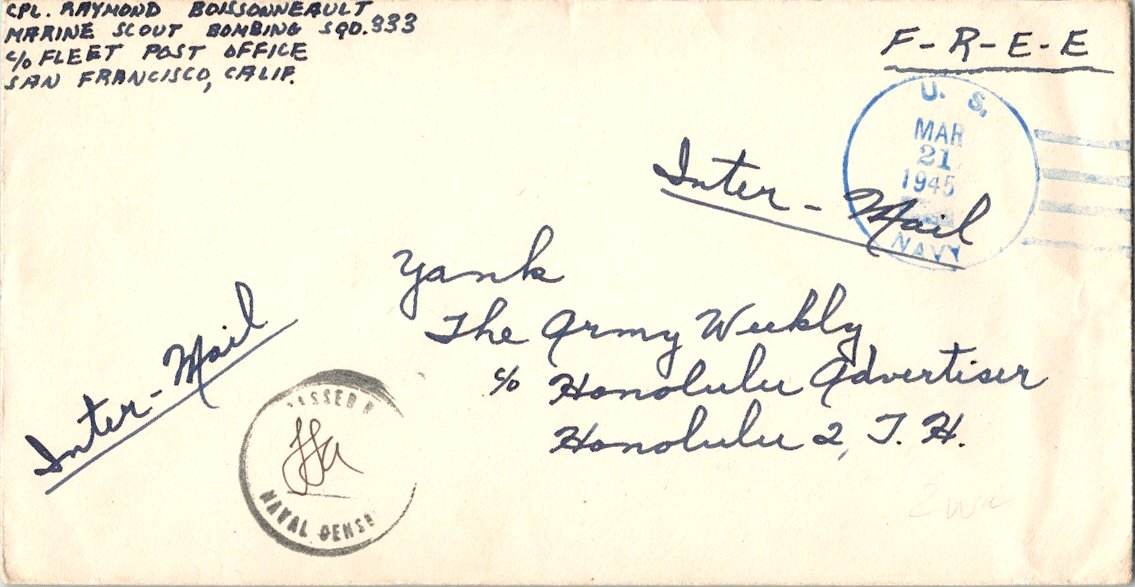 CPL. RAYMOND BOISSONNEAULT
MARINE SCOUT BOMBING SQD. 333
c/o FLEET POST OFFICE
SAN FRANCISCO, CALIF.
F-R-E-E
U. S.
MAR
21
1945
NAVY
Inter-Mail
Yank
The Army Weekly
c/o Honolulu Advertiser
Honolulu 2, T. H.
Inter-Mail
PASSED
NAVAL